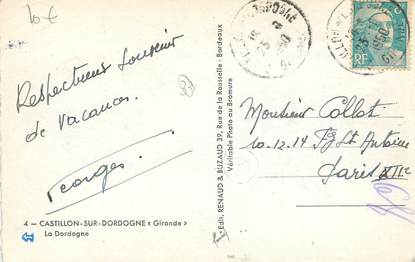 10€
Respectueux souvenir
de vacances.
Georges.
4 — CASTILLON-SUR-DORDOGNE « Gironde »
La Dordogne
Edit. RENAUD & BUZAUD 39, Rue de la Rousselle - Bordeaux
Véritable Photo au Bromure
RF
Monsieur Collot
10.12.14 Fg St Antoine
Paris XIIe